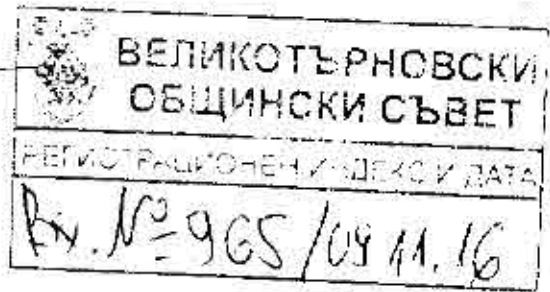 ВЕЛИКОТЪРНОВСКИ
ОБЩИНСКИ СЪВЕТ
РЕГИСТРАЦИОНЕН ИНДЕКС И ДАТА
Вх. № 965/09 11.16